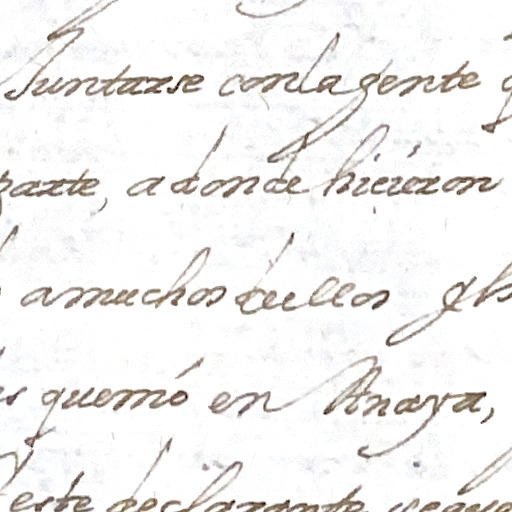 Juntarse con la gente q
parte, a donde hicieron
a muchos dellos y los
quemó en Anaya,
este declarante